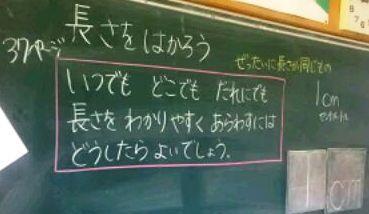 長さをはかろう
37ページ
ぜったいに長さが同じもの
いつでも どこでも だれにでも
長さを わかりやすく あらわすには
どうしたら よいでしょう。
1cm
センチメートル
cm